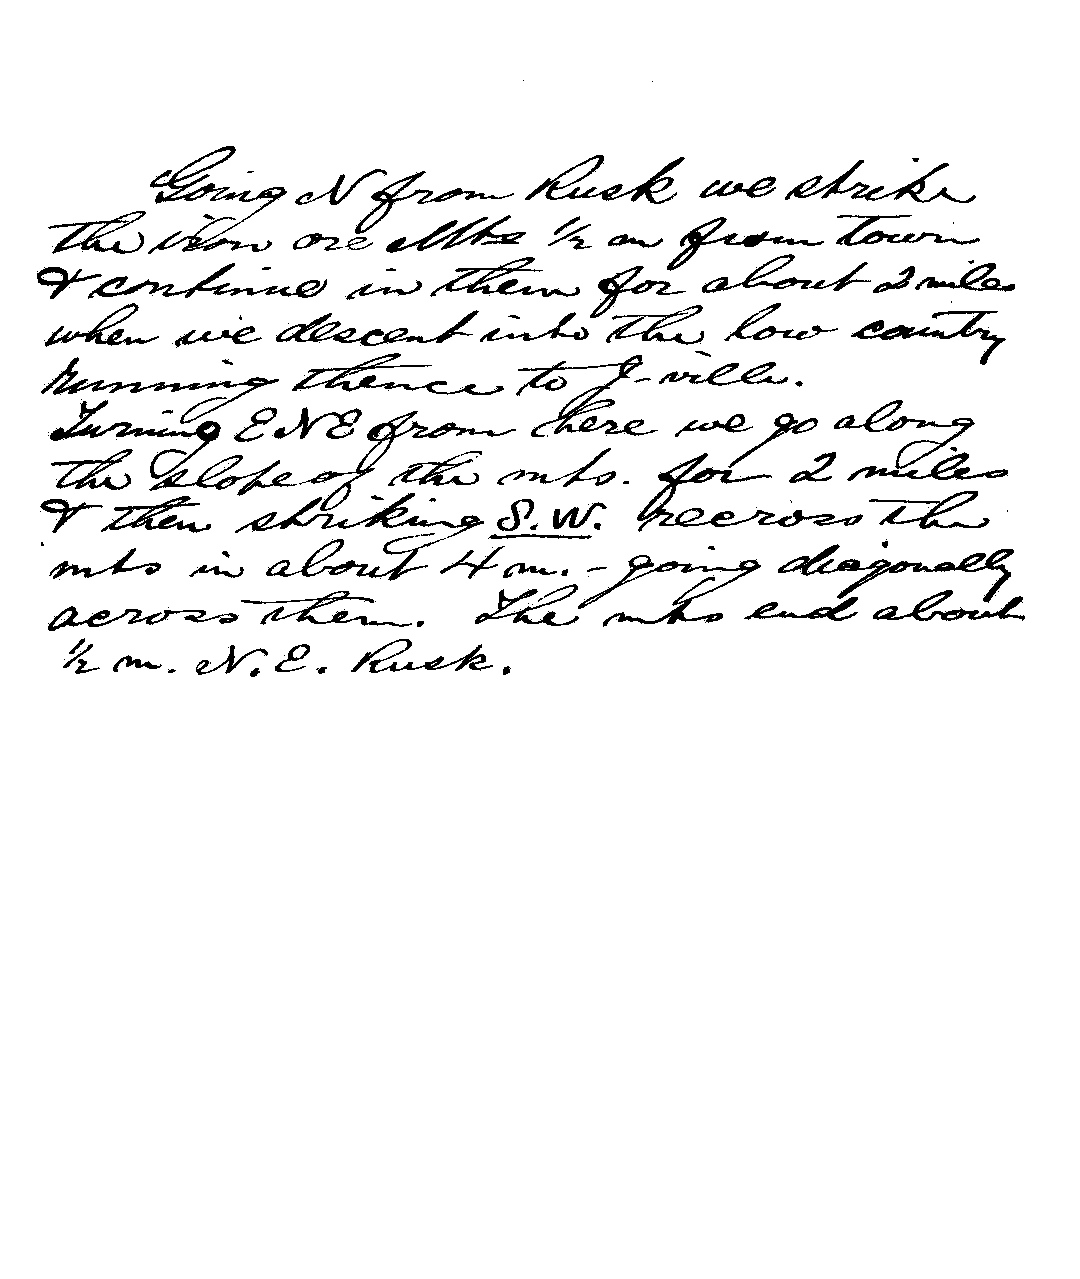 Going N from Rusk we strike
the iron ore Mts ½ m from town
& continue in them for about 2 miles
when we descent into the low country
running thence to J-ville.
Turning E N E from here we go along
the slope of the mts. for 2 miles
& then striking S.W. recross the
mts in about 4 m. - going diagonally
across them. The mts end about
½ m. N.E. Rusk.